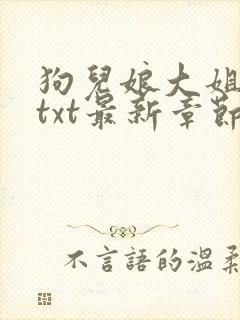 狗兒娘大姐
txt最新章節
不言語的溫柔